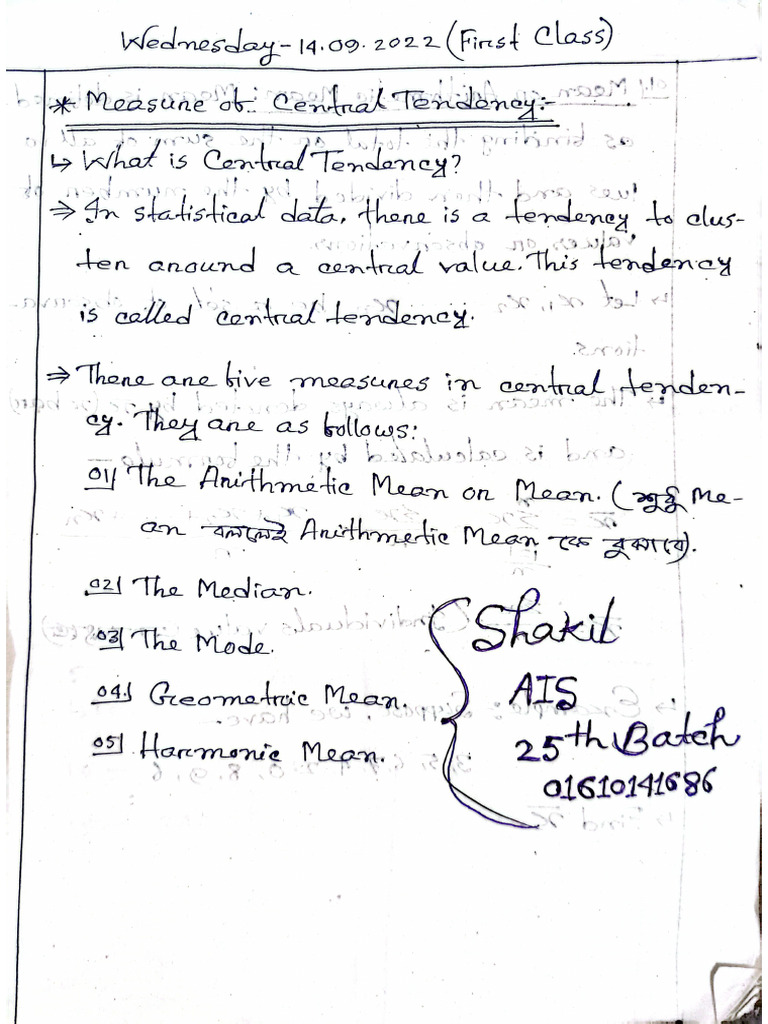 Wednesday-14.09.2022 (First Class)
* Measure of Central Tendency:-
↳ What is Central Tendency?
⇒ In statistical data, there is a tendency to clus-
ter around a central value. This tendency
is called central tendency.
⇒ There are five measures in central tenden-
cy. They are as follows:
01) The Arithmetic Mean or Mean. (শুধু Me-
an বললেই Arithmetic Mean কে বুঝাবে).
02) The Median.
03) The Mode.
04) Geometric Mean.
05) Harmonic Mean.
Shakil
AIS
25th Batch
01610141686